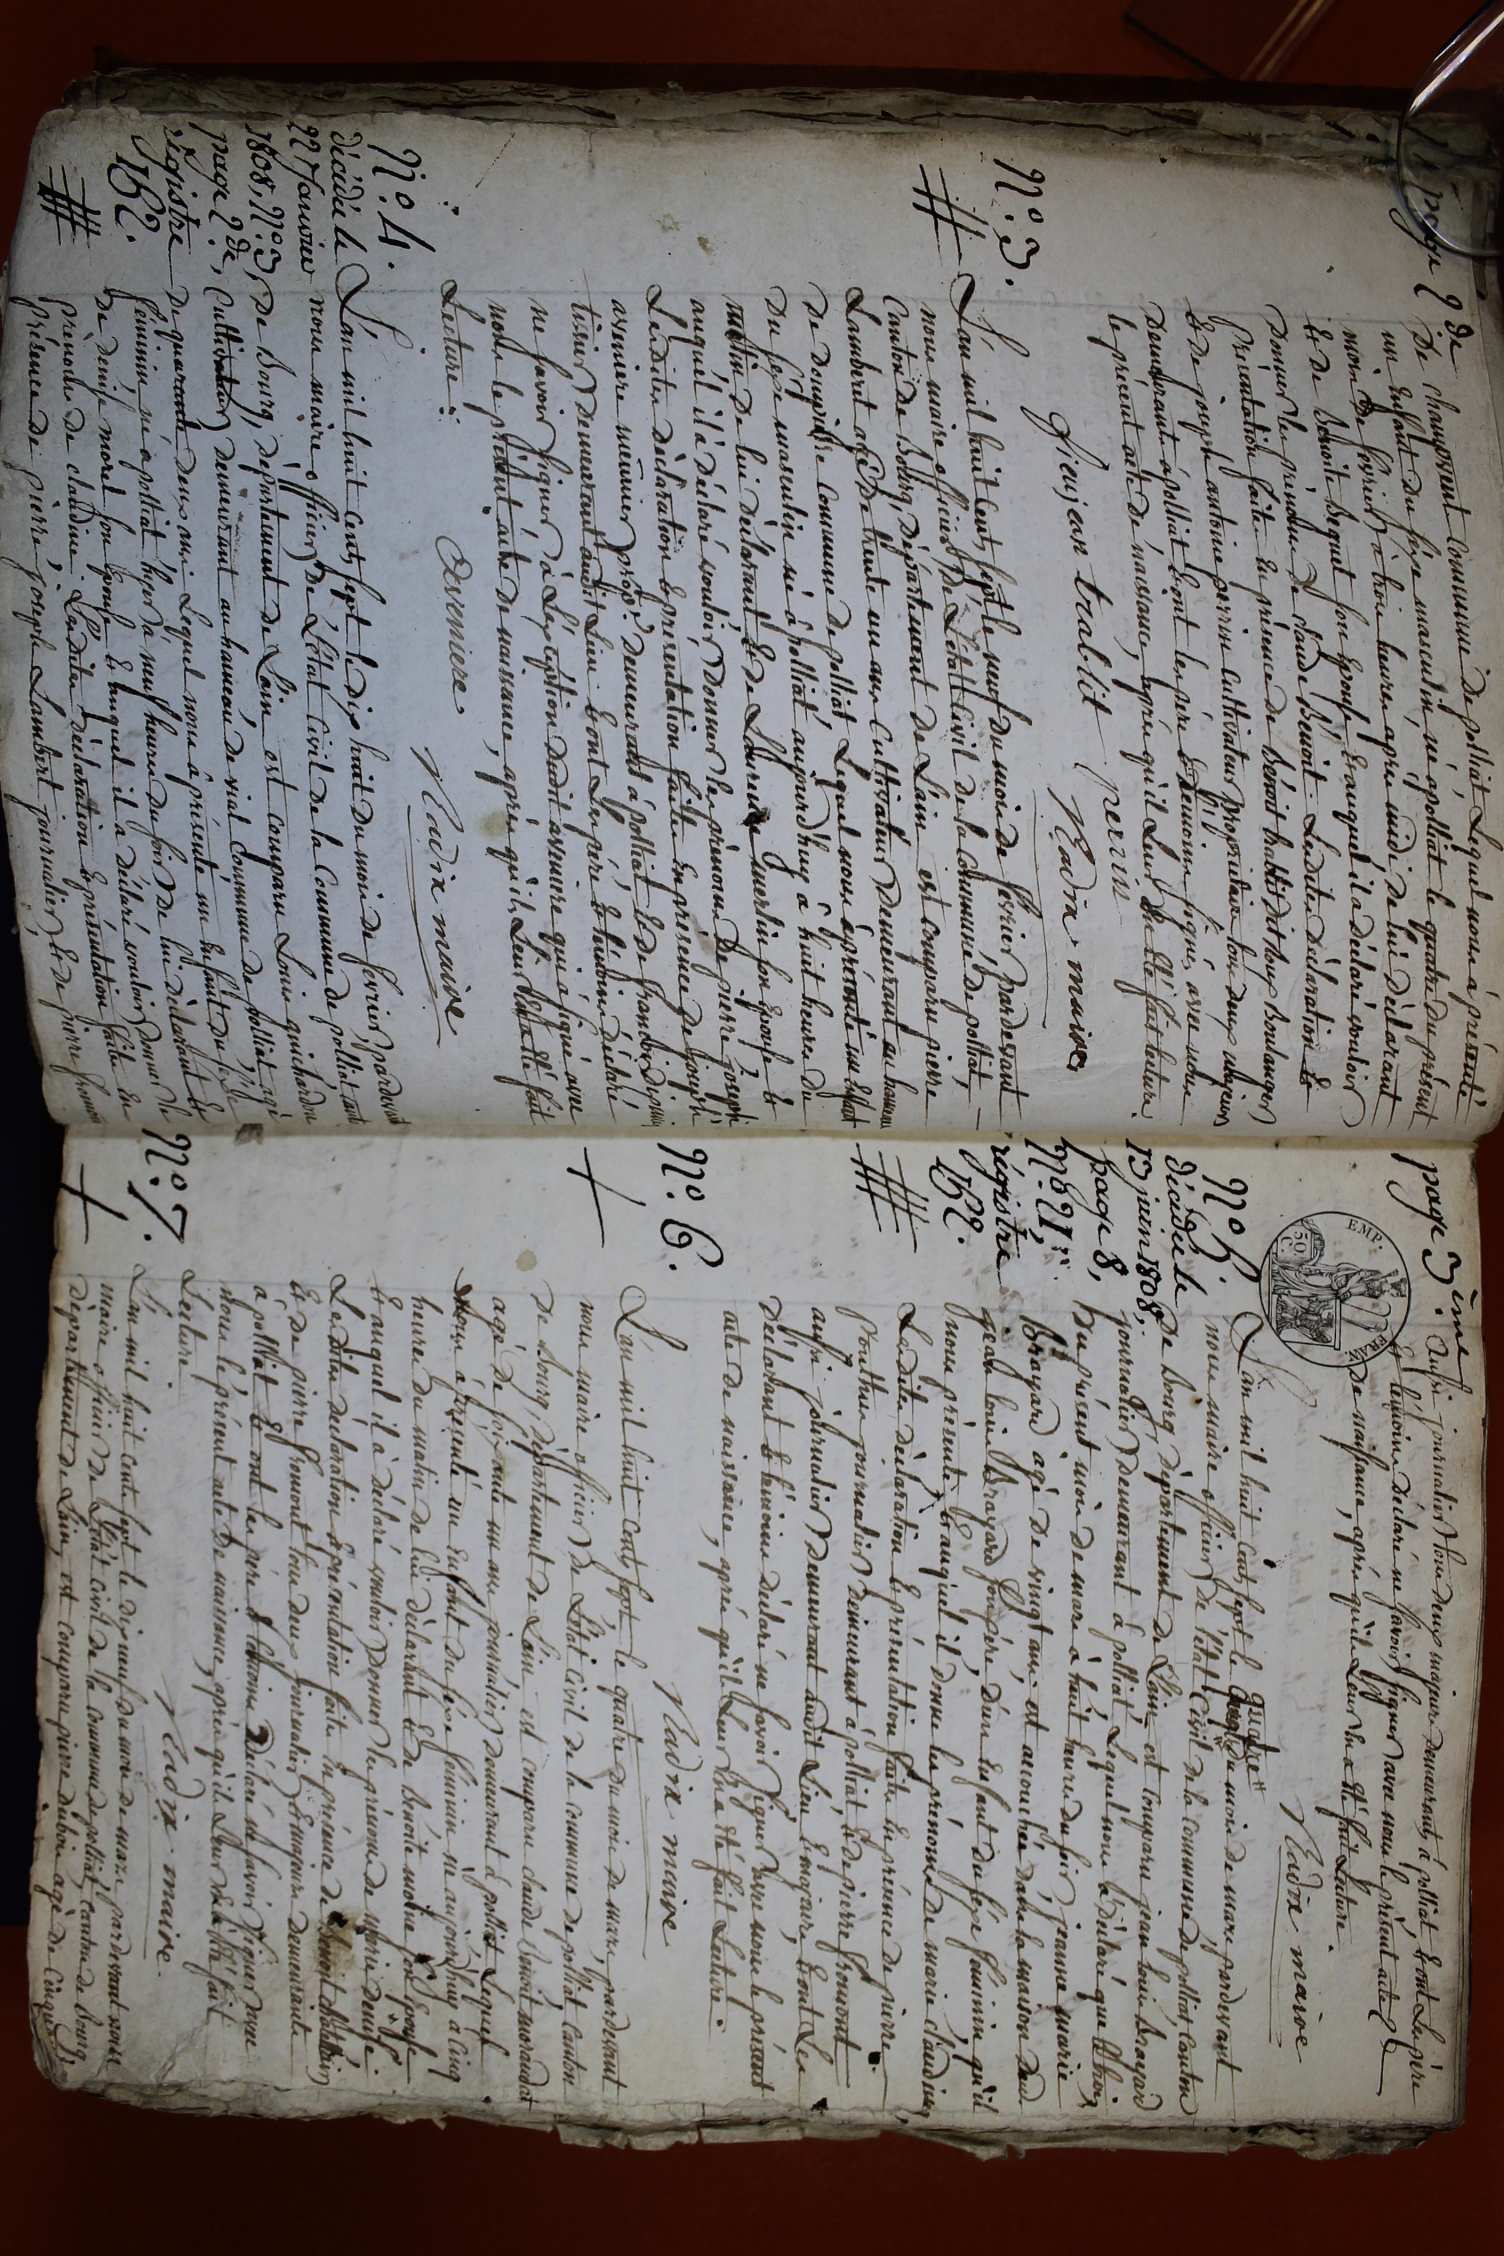 page 2de
de champvent commune de polliat, Lequel nous à présenté
un Enfant du sèxe masculin né à polliat le quatre du présent
mois de fevrier à trois heures après midi, de lui déclarant
Et de Benoite Bequet son épouse Et auquel il a déclaré vouloir
donner les prénoms de claude Benoit. Lesdites déclaration Et
présentation faite En présence de Benoit trablit dit Loup Boulanger
Et de joseph antoine perrin Cultivateur proprietaire tous deux majeurs
Demeurants à polliat Et ont les père Et temoins signés avec nous
le présent acte de naissance, après qu'il Leur En a été fait Lecture.
Benjean trablit perrin Nadix maire
N.° 3.
L'an mil huit Cent sept le neuf du mois de fevrier, pardevant
nous maire officier De L'état Civil de la Commune de polliat,
Canton de Bourg, Département de L'ain est comparu pierre
Lambert agé De trente un ans Cultivateur Demeurant au hameau
de Dompierre Commune de polliat, Lequel nous à présenté un Enfant
Du sèxe masculin né à polliat aujourd'huy à huit heures du
matin De lui Déclarant Et De Laurence Guerlin son épouse Et
auquel il à déclaré vouloir Donner les prénoms De pierre joseph.
Lesdites déclaration Et présentation faite En présence de joseph
asseniere meûnier propre. demeurant à polliat Et de françois
tissier Demeurant audit Lieu Et ont Les père Et temoins déclaré
ne savoir signer à L'éxception dudit asseniere qui a signé avec
nous le présent acte de naissance, après qu'il Leur En a été fait
Lecture.
Asseniere Nadix maire
N.° 4.
décédé le
22 Janvier
1808, N.° 3,
page 2de,
régistre
162.
L'an mil huit Cent sept le dix huit du mois de fevrier pardevant
nous maire officier De L'état Civil de la Commune de polliat canton
De Bourg, département de L'ain est comparu Louis guichardon
Cultivateur demeurant au hameau de vial Commune de polliat, agé
De quarante deux ans Lequel nous à présenté un Enfant du sèxe
feminin, né à polliat hyer à neuf heures du soir De lui déclarant Et
De denise morel son épouse Et auquel il a déclaré vouloir donner le
prénoms de claudine. Lesdites déclaration Et présentation faite En
présence de pierre joseph Lambert journalier Et de pierre fromont
page 3.ème
EMP. FRAN.
50 C.
aussi journalier tous deux majeurs demeurants à polliat Et ont Les père
Et temoins déclaré ne savoir signer avec nous le présent acte
De naissance, après qu'il Leur En a été fait Lecture.
Nadix maire
N.° 5.
décédée le
13 juin 1808,
page 8,
N.° 21,
régistre
162.
L'an mil huit Cent sept le quatre du mois de mars, pardevant
nous maire officier De l'état Civil de la Commune de polliat Canton
De Bourg, département de L'ain est comparu jean Louis brayard
journalier demeurant à polliat, Lequel nous à déclaré que Le trois
Du présent mois de mars à huit heures du soir jeanne marie
Brayard agé de vingt ans est accouchée dans la maison dud.
jean Louis Brayard son père d'un Enfant du sèxe feminin, qu'il
nous présente Et auquel il donne les prénoms de marie claudine,
Lesdites déclaration Et présentation faite En présence de pierre
Ponthus journalier demeurant à polliat Et de pierre fromont
aussi journalier demeurant audit Lieu Et majeurs, Et ont Les
Déclarant Et témoins déclaré ne savoir signer avec nous le présent
acte de naissance, après qu'il Leur En a été fait Lecture.
Nadix maire
N.° 6.
L'an mil huit Cent sept le quatre du mois de mars, pardevant
nous maire officier De L'état Civil de la Commune de polliat Canton
De Bourg, département de L'ain est comparu claude Benoit morandat
agé de soixante un ans journalier demeurant à polliat Lequel
nous a présenté un Enfant du sèxe feminin né aujourd'huy a Cinq
heures du matin de lui déclarant Et de Benoite morel son épouse
Et auquel il à déclaré vouloir Donner les prénoms de marie denise.
Lesdites déclaration Et présentation faite En présence de Benoit
Et de pierre fromont tous deux journaliers Et majeurs demeurants
à polliat Et ont les père Et temoins déclaré ne savoir signer avec
nous le présent acte de naissance, après qu'il Leur En a été fait
Lecture.
Nadix maire.
N.° 7.
L'an mil huit Cent sept le dix neuf du mois de mars pardevant nous
maire officier De L'état Civil de la Commune de polliat, Canton de Bourg
Département de L'ain, est comparu pierre dubois agé de Cinquante